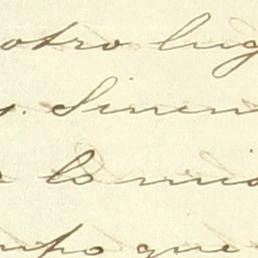 otro lug
s. Sinem
e lo mis
mpo que